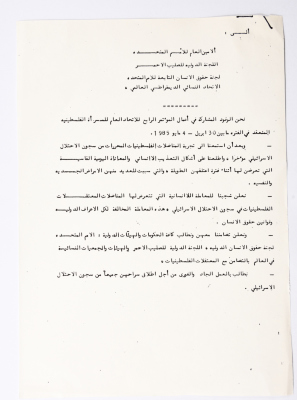 الــى :
الامين العام للأمم المتحده
اللجنة الدولية للصليب الاحمر
لجنة حقوق الانسان التابعة للامم المتحده
الاتحاد النسائي الديمقراطي العالمي
ـــــــــــ
نحن الوفود المشاركة في أعمال المؤتمر الرابع للاتحاد العام للمرأة الفلسطينيه
المنعقد في الفترة ما بين 30 ابريل - 4 مايو 1985
- وبعد أن استمعنا الى تجربة المناضلات الفلسطينيات المحررات من سجون الاحتلال
الاسرائيلي مؤخرا واطلعنا على أشكال التعذيب اللاانساني والمعاناة اليومية القاسية
التي تعرضن لها أثناء فترة اعتقالهن الطويلة والتي سببت للعديد منهن الامراض الجسديه
والنفسيه
- نعلن شجبنا للمعاملة اللاانسانية التي تتعرض لها المناضلات المعتقلات
الفلسطينيات في سجون الاحتلال الاسرائيلي وهذه المعاملة المخالفة لكل الاعراف الدوليه
وقوانين حقوق الانسان
- ونعلن تضامننا معهن ونطالب كافة الحكومات والهيئات الدولية : الامم المتحده
حقوق الانسان الدوليه اللجنة الدولية للصليب الاحمر والهيئات والجمعيات النسائية
في العالم بالتضامن مع المعتقلات الفلسطينيات
- نطالب بالعمل الجاد والفوري من أجل اطلاق سراحهن جميعا من سجون الاحتلال
الاسرائيلي